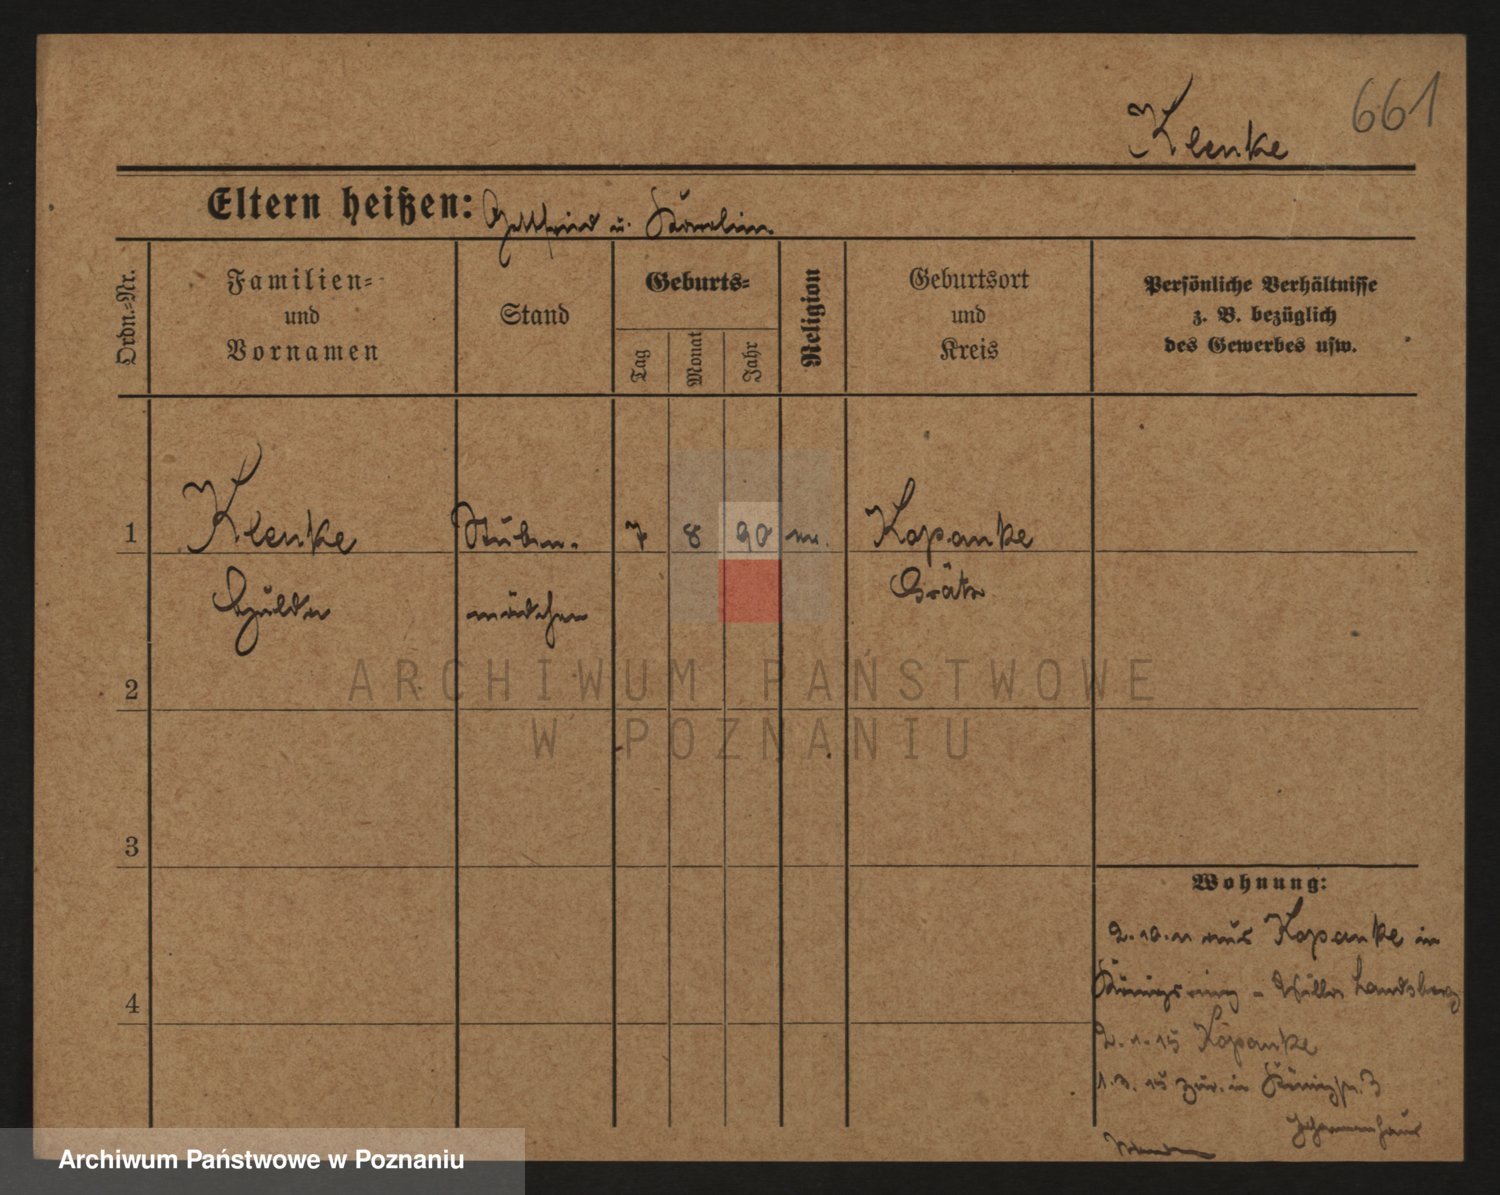 661
Klenke
Eltern heißen: Gottfried u. Karolin
Ordn.-Nr.
Familien-
und
Vornamen
Stand
Geburts-
Tag
Monat
Jahr
Religion
Geburtsort
und
Kreis
Persönliche Verhältnisse
z. B. bezüglich
des Gewerbes usw.
1 Klenke Stuben- 7 8 90 Kopanke
Hulda mädchen Grätz
2
3
4
Wohnung:
2.10.11 aus Kopanke in
Königsring - Villa Landsberg
2.1.15 Kopanke
1.3.15 zur. in
ARCHIWUM PAŃSTWOWE
W POZNANIU
Archiwum Państwowe w Poznaniu